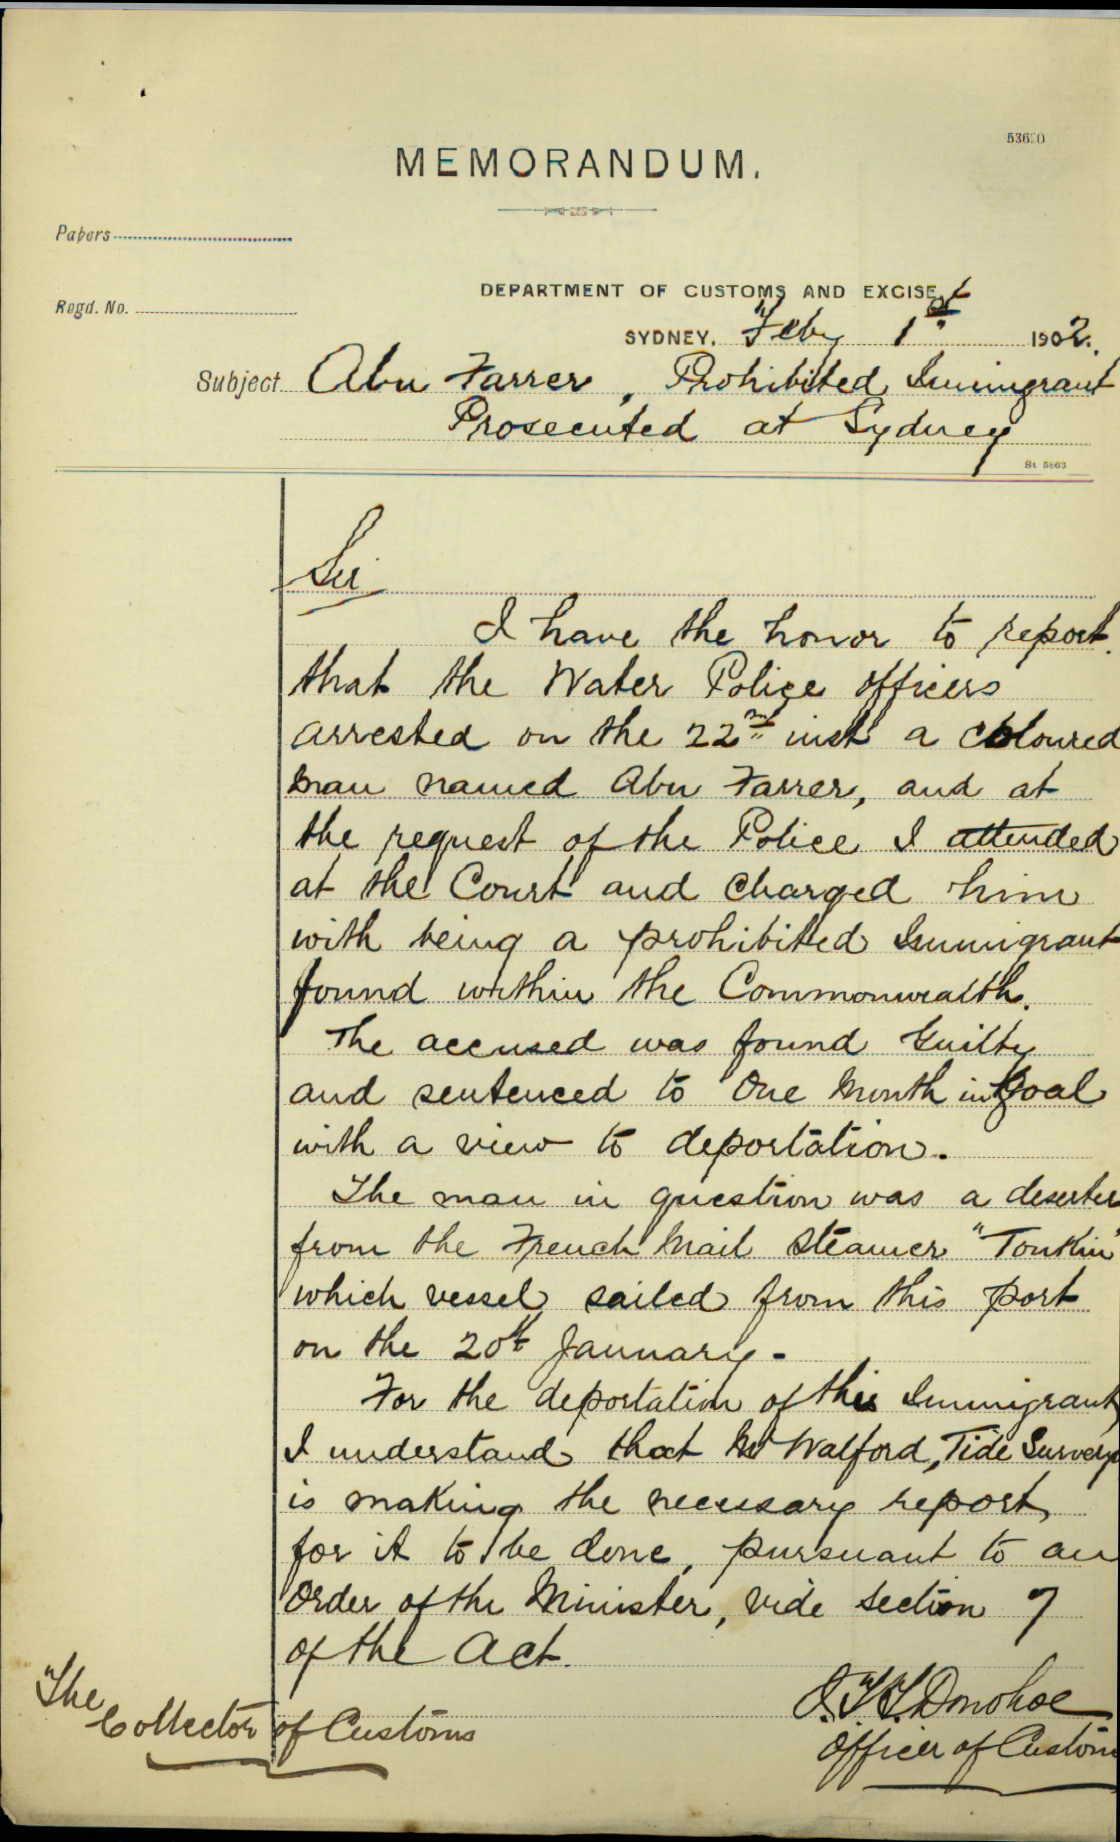 53620
MEMORANDUM.
Papers
Regd. No.
DEPARTMENT OF CUSTOMS AND EXCISE,
SYDNEY, Feby 1st 1902.
Subject Abu Farrer, Prohibited Immigrant
Prosecuted at Sydney
St. 5863
Sir
I have the honor to report
that the Water Police officers
arrested on the 22nd inst a coloured
man named Abu Farrer, and at
the request of the Police I attended
at the Court and charged him
with being a prohibited Immigrant
found within the Commonwealth.
The accused was found Guilty
and sentenced to One Month in Goal
with a view to deportation.
The man in question was a deserter
from the French Mail Steamer "Tonkin"
which vessel sailed from this port
on the 20th January.-
For the deportation of this Immigrant
I understand that Mr Walford, Tide Surveyo
is making the necessary report,
for it to be done, pursuant to an
Order of the Minister, vide section 7
of the Act.
Donohoe
Officer of Custom
The
Collector of Customs